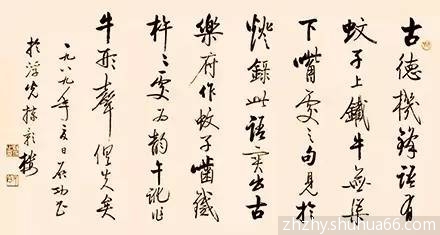 古德機鋒語有
蚊子上鐵牛無渠
下嘴處之句見於
燈錄此語實出古
樂府作蚊子嚙鐵
杵〻處为韵午訛作
牛形聲俱失矣
一九八九年夏日启功
於浮光掠影樓
zhzhy.shuhua66.com